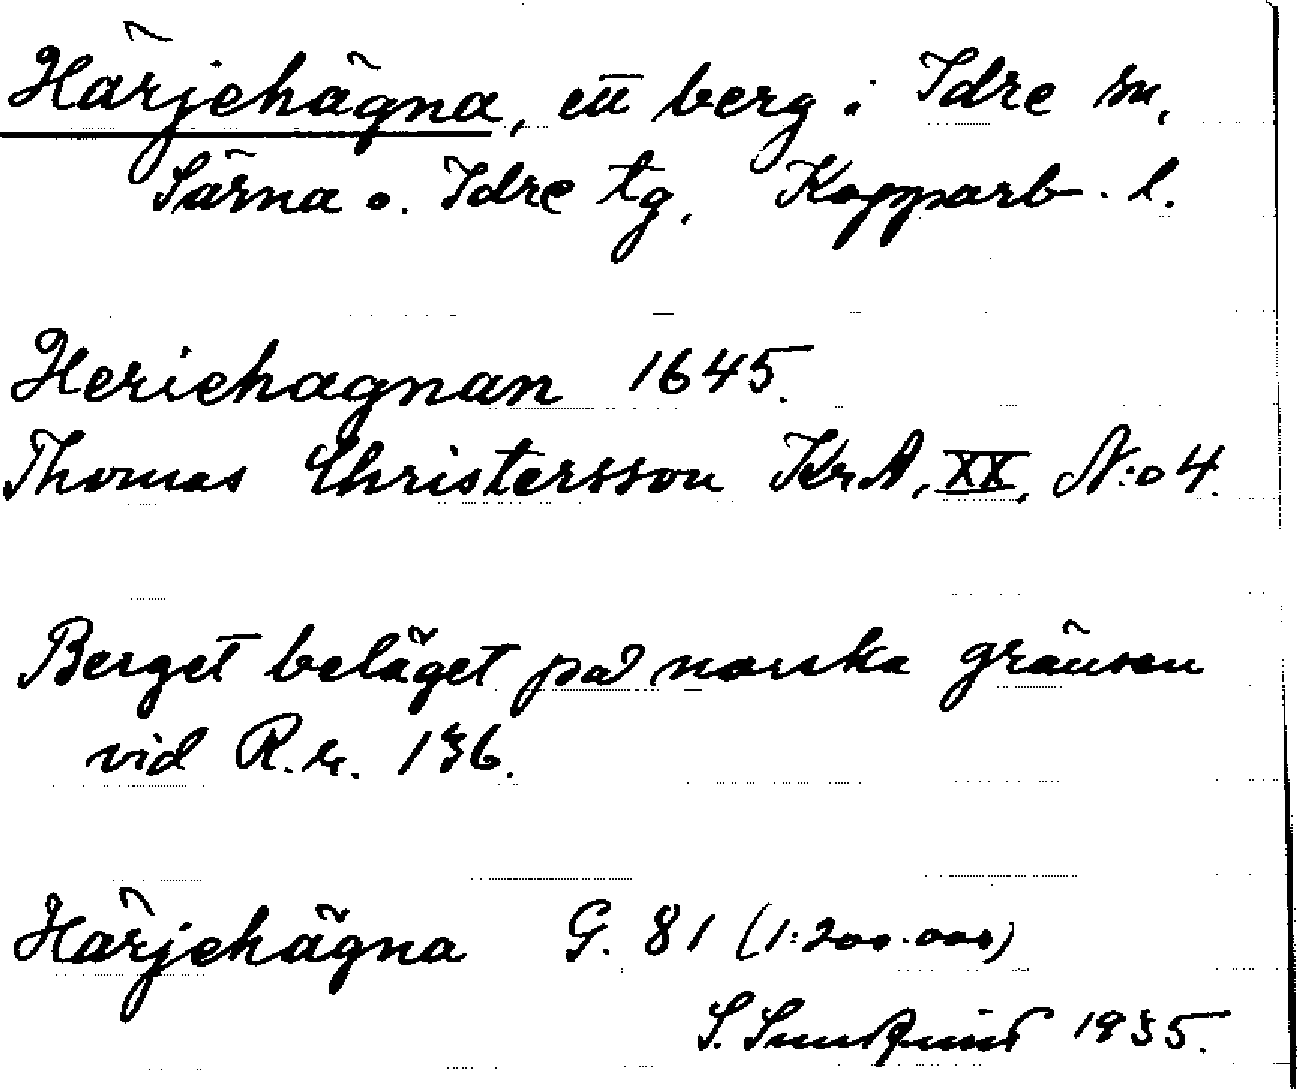 Härjehägna, ett berg i Idre sn,
Särna o. Idre tg, Kopparb. l.
Heriehagnan 1645.
Thomas Christersson Kr.A, XX, N:o 4.
Berget beläget på norska gränsen
vid R.r. 136.
Härjehägna G. 81 (1:200.000)
S. 1935.